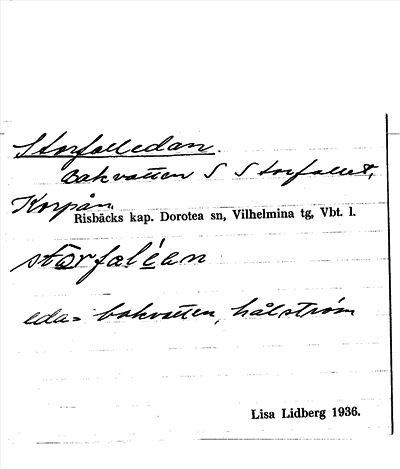 Storfalledan.
Bakvatten S Storfallet,
Korpån,
Risbäcks kap. Dorotea sn, Vilhelmina tg, Vbt. l.
storfaléan
eda = bakvatten, hålström
Lisa Lidberg 1936.